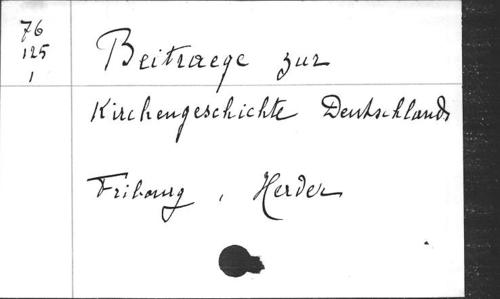 76
125
1
Beitraege zur
Kirchengeschichte Deutschlands
Fribourg, Herder